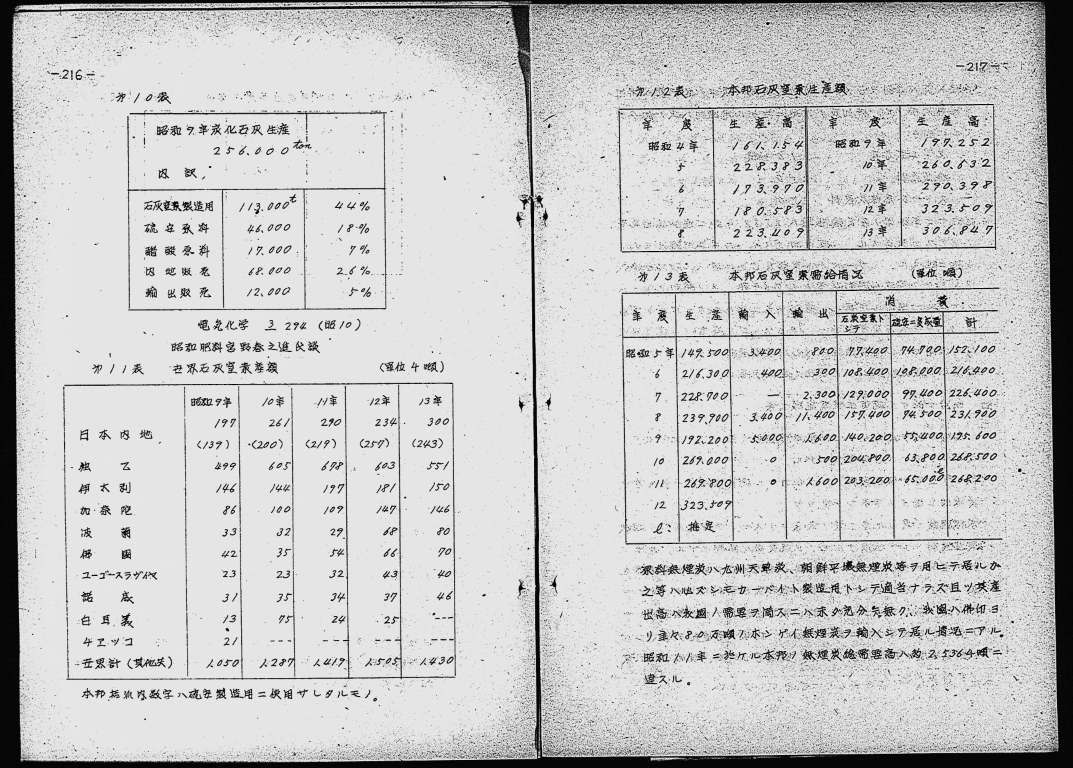 -216-
第10表
昭和9年炭化石灰生産
256,000 ton
内訳
石灰窒素製造用 113,000t 44%
硫安原料 46,000 18%
醋酸原料 17,000 7%
内地販売 68,000 26%
輸出販売 12,000 5%
電気化学 3 294 (昭10)
昭和肥料
第11表 世界石灰窒素産額 (單位千噸)
昭和9年 10年 11年 12年 13年
日本内地 197 261 290 234 300
(139) (200) (219) (257) (243)
独乙 499 605 678 603 551
伊太利 146 144 197 181 150
加奈陀 86 100 109 147 146
波蘭 33 32 29 68 80
佛國 42 35 54 66 70
ユーゴースラヴイヤ 23 23 32 43 40
諾威 31 35 34 37 46
白耳義 13 75 24 25 ---
チエッコ 21 --- --- --- ---
世界計(其他共) 1,050 1,287 1,419 1,505 1,430
本邦括弧内数字ハ硫安製造用ニ使用サレタルモノ。
-217-
第12表 本邦石灰窒素生産額
年度 生産高 年度 生産高
昭和4年 161,154 昭和9年 197,252
5 228,383 10年 260,632
6 173,970 11年 290,398
7 180,583 12年 323,509
8 223,409 13年 306,847
第13表 本邦石灰窒素需給情況 (單位噸)
年度 生産 輸入 輸出 消費
石灰窒素トシテ 硫安ニ変成量 計
昭和5年 149,500 3,400 800 77,400 74,700 152,100
6 216,300 400 300 108,400 108,000 216,400
7 228,700 — 2,300 129,000 97,400 226,400
8 239,900 3,400 11,400 157,400 74,500 231,900
9 192,200 5,000 1,600 140,200 55,400 195,600
10 269,000 0 500 204,800 63,800 268,500
11 269,800 0 1,600 203,200 65,000e 268,200
12 323,509
e: 推定
原料無煙炭ハ九州天草炭、朝鮮平壌無煙炭等ヲ用ヒテ居ルガ
之等ハ必ズシモカーバイト製造用トシテ適当ナラズ且ツ其産
出高ハ我國ノ需要ヲ満スニハ未ダ充分 我國ハ佛印ヨ
リ年々80万噸ノホンゲイ無煙炭ヲ輸入シテ居ル情況ニアル。
昭和11年ニ於ケル本邦ノ無煙炭総需要高ハ約2,536千噸ニ
達スル。